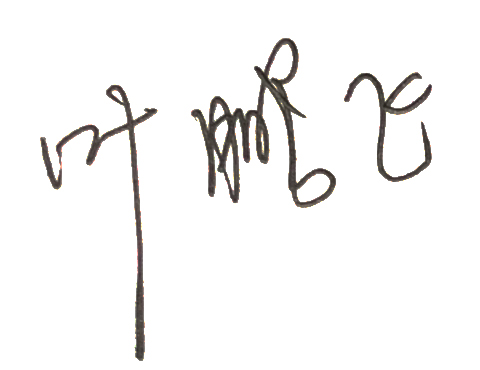 叶鹏飞